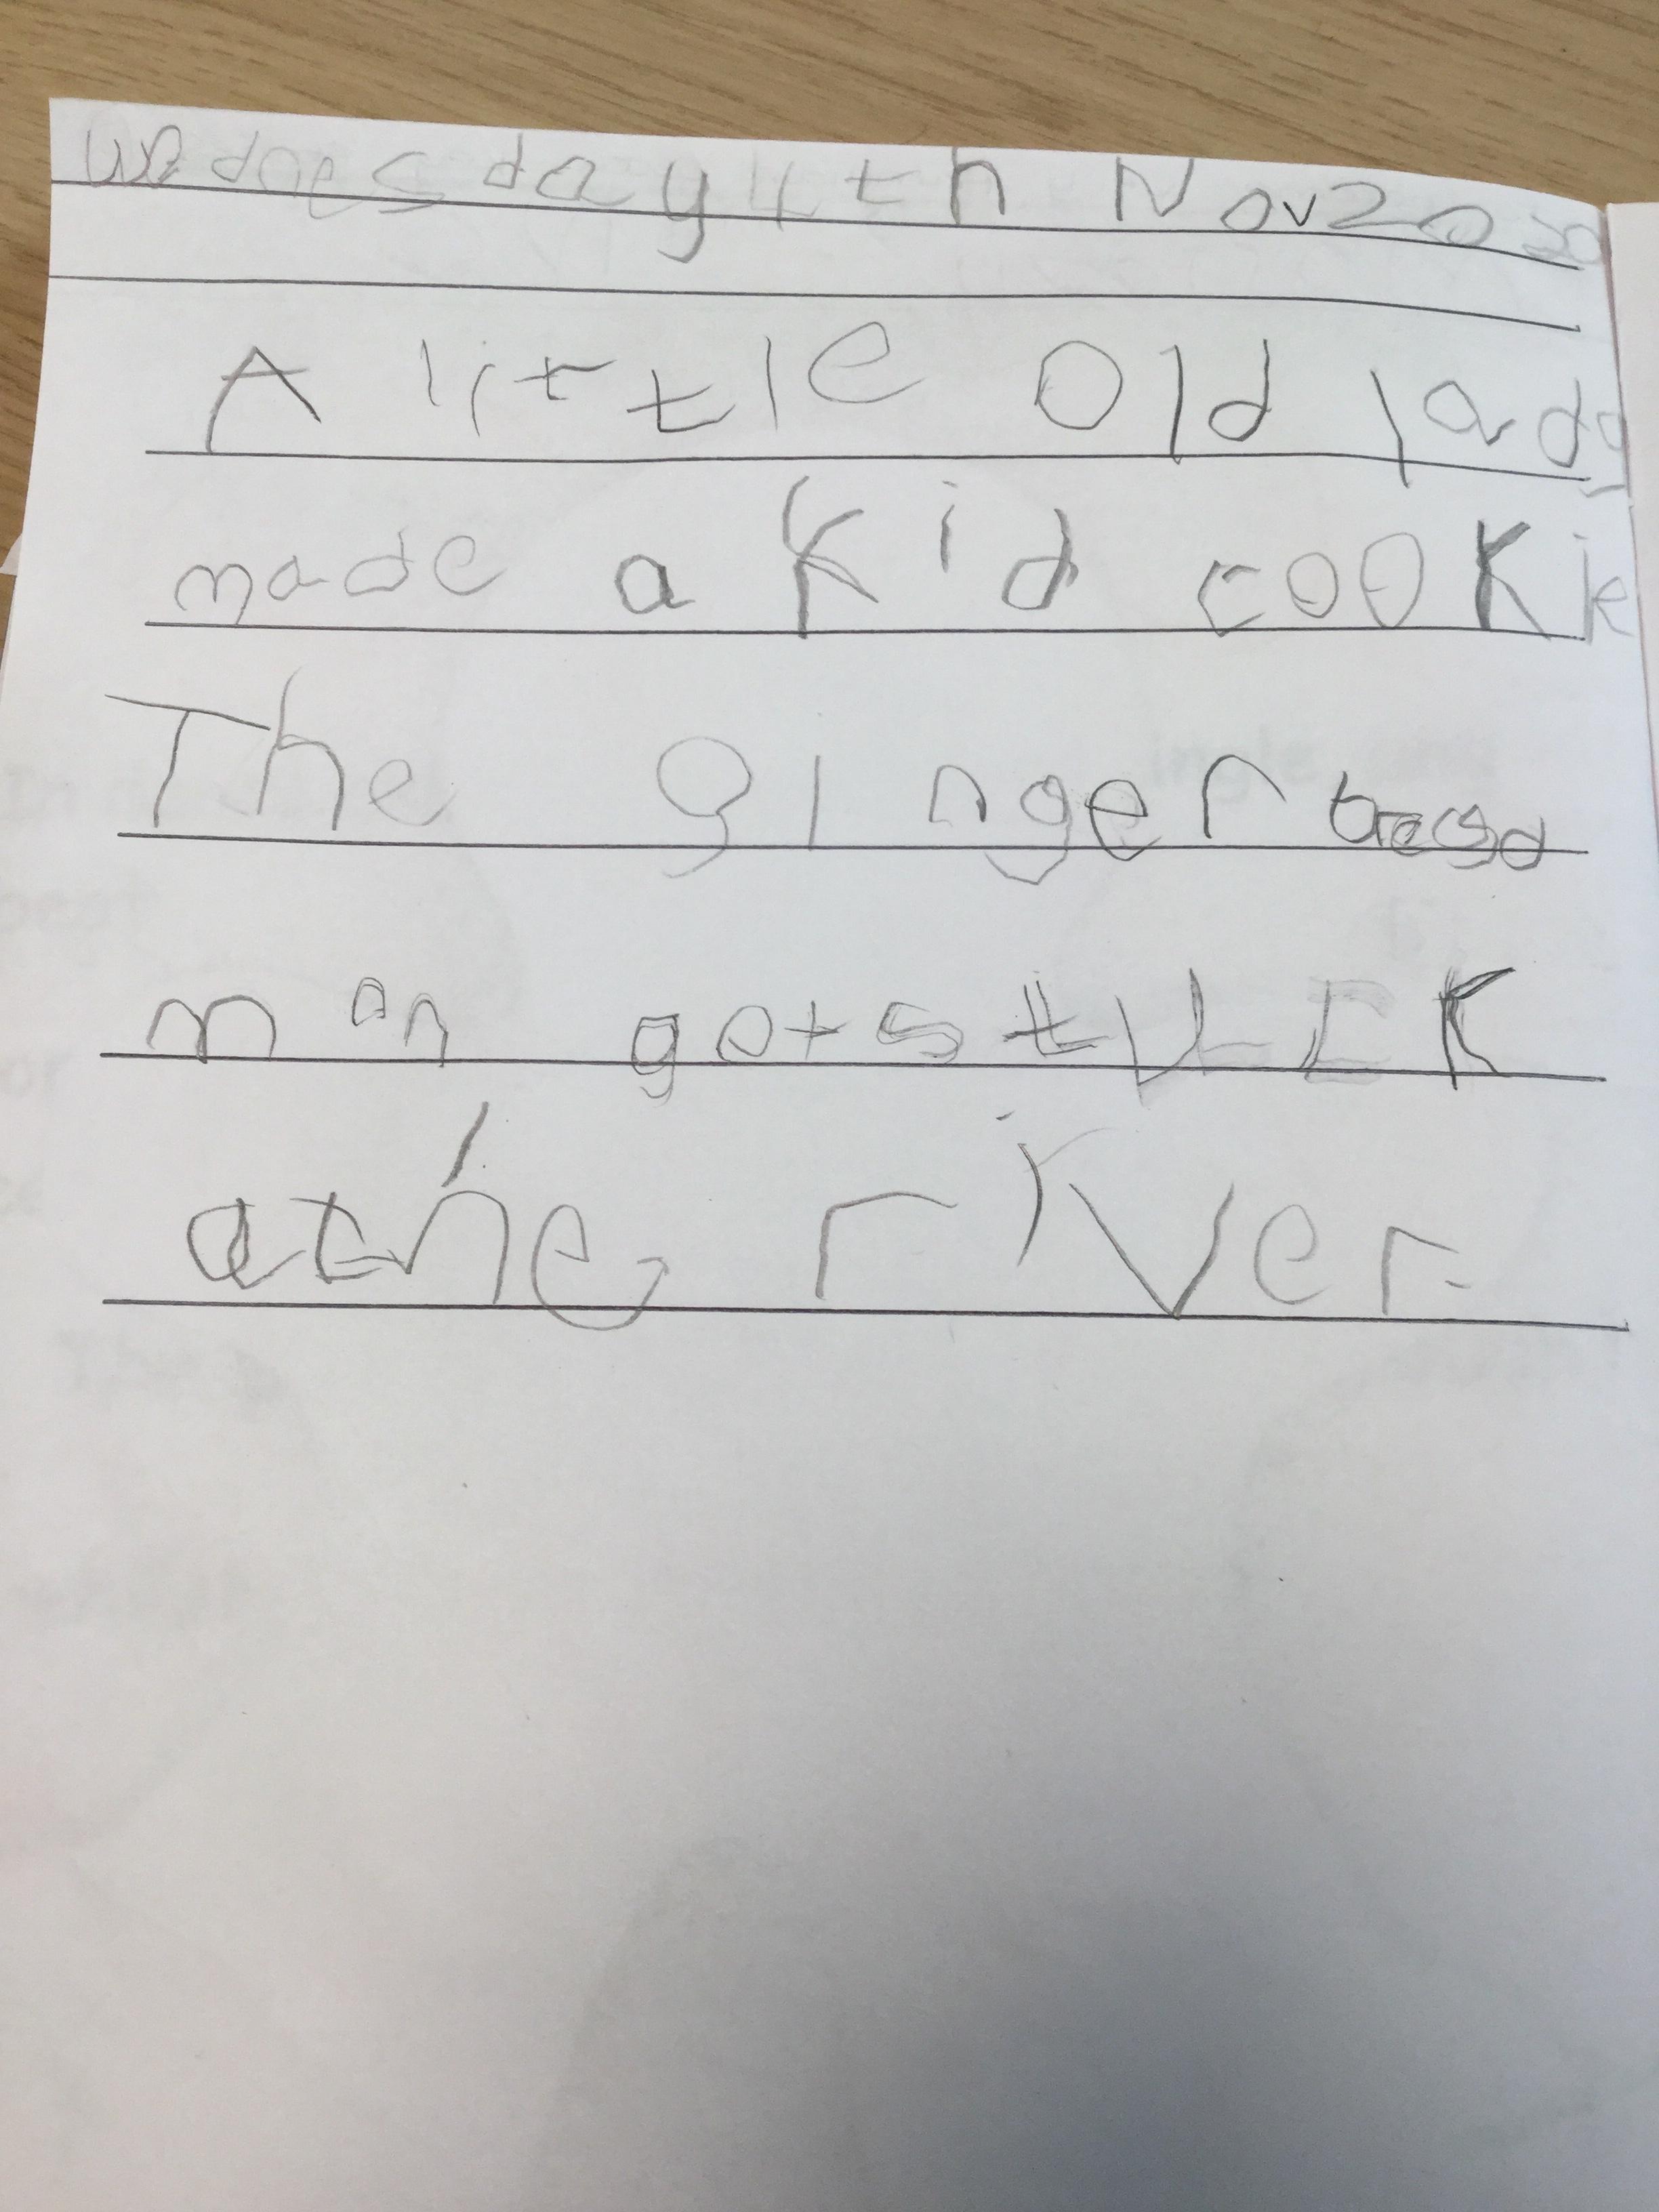 Wednesday 4th Nov 2020
A little old lady
made a kid cookie
The gingerbread
man got stuck
at the river.